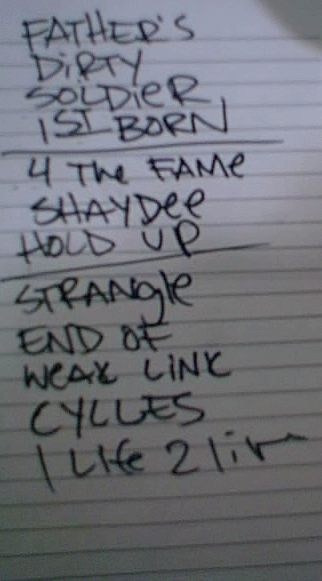 FATHER'S
DIRTY
SOLDIER
1ST BORN
4 THE FAME
SHAYDEE
HOLD UP
STRANGLE
END OF
WEAK LINK
CYCLES
1 LIFE 2 liv